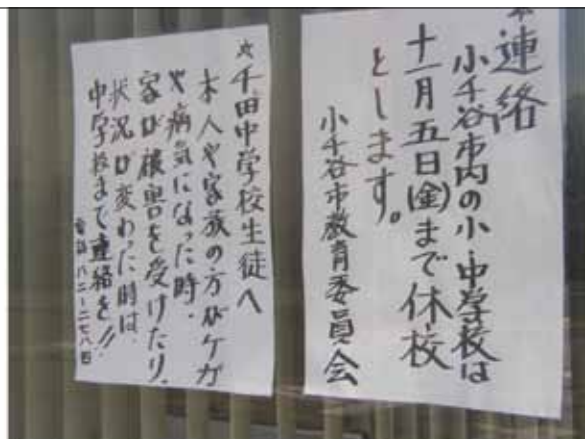 連絡
小千谷市内の小・中学校は
十一月五日(金)まで休校
とします。
小千谷市教育委員会
☆千田中学校生徒へ
本人や家族の方がケガ
や病気になった時、
家が被害を受けたり、
状況が変わった時は、
中学校まで連絡を!!